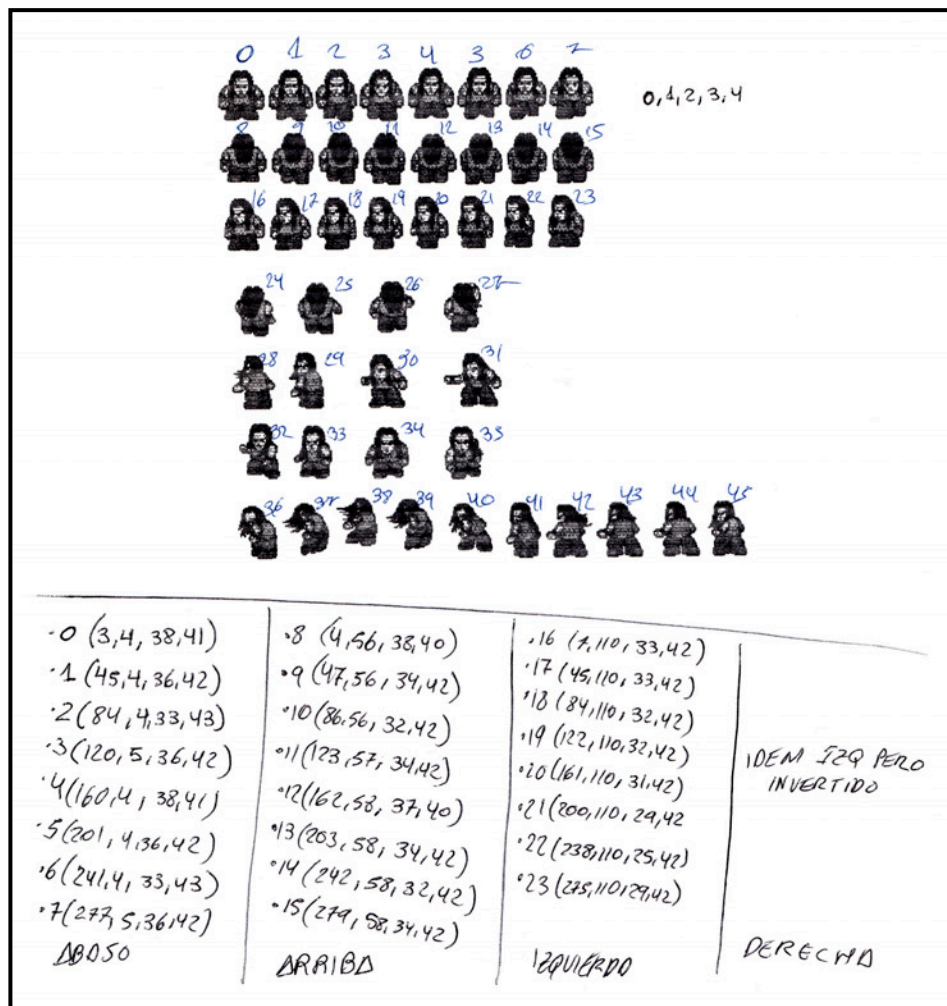 0 1 2 3 4 5 6 7
0,1,2,3,4
8 9 10 11 12 13 14 15
16 17 18 19 20 21 22 23
24 25 26 27
28 29 30 31
32 33 34 35
36 37 38 39 40 41 42 43 44 45
·0 (3,4, 38,41)
·1 (45,4,36,42)
·2 (84,4,33,43)
·3 (120,5,36,42)
·4 (160,4, 38,41)
·5 (201,4,36,42)
·6 (241,4, 33,43)
·7 (277,5,36,42)
ABAJO
·8 (4,56,38,40)
·9 (47,56, 34,42)
·10 (86,56, 32,42)
·11 (123,57, 34,42)
·12 (162,58, 37,40)
·13 (203,58, 34,42)
·14 (242,58,32,42)
·15 (279,58,34,42)
ARRIBA
·16 (7,110,33,42)
·17 (45,110,33,42)
·18 (84,110,32,42)
·19 (122,110,32,42)
·20 (161,110,31,42)
·21 (200,110,29,42
·22 (238,110,25,42)
·23 (275,110,29,42)
IZQUIERDO
IDEM IZQ PERO
INVERTIDO
DERECHA